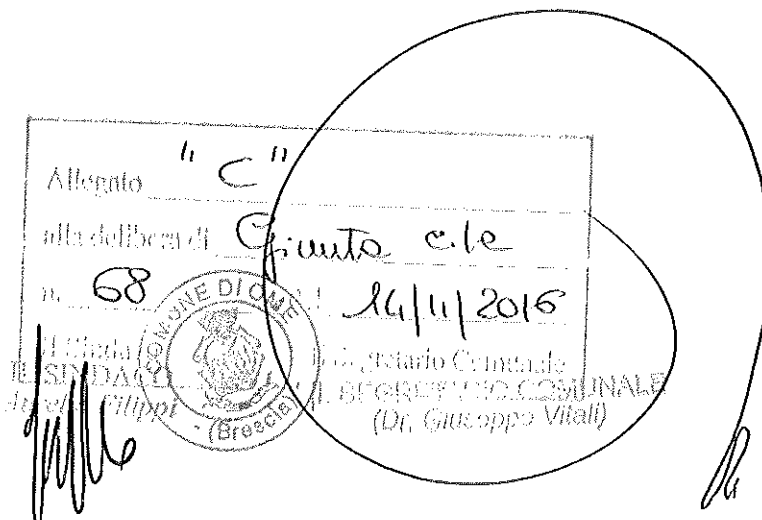 Allegato "C"
alla delibera di Giunta c.le
n. 68 14/11/2016
Il Sindaco Il Segretario Comunale
IL SINDACO IL SEGRETARIO COMUNALE
Filippi (Dr. Giuseppe Vitali)
COMUNE DI OME
- (Brescia)